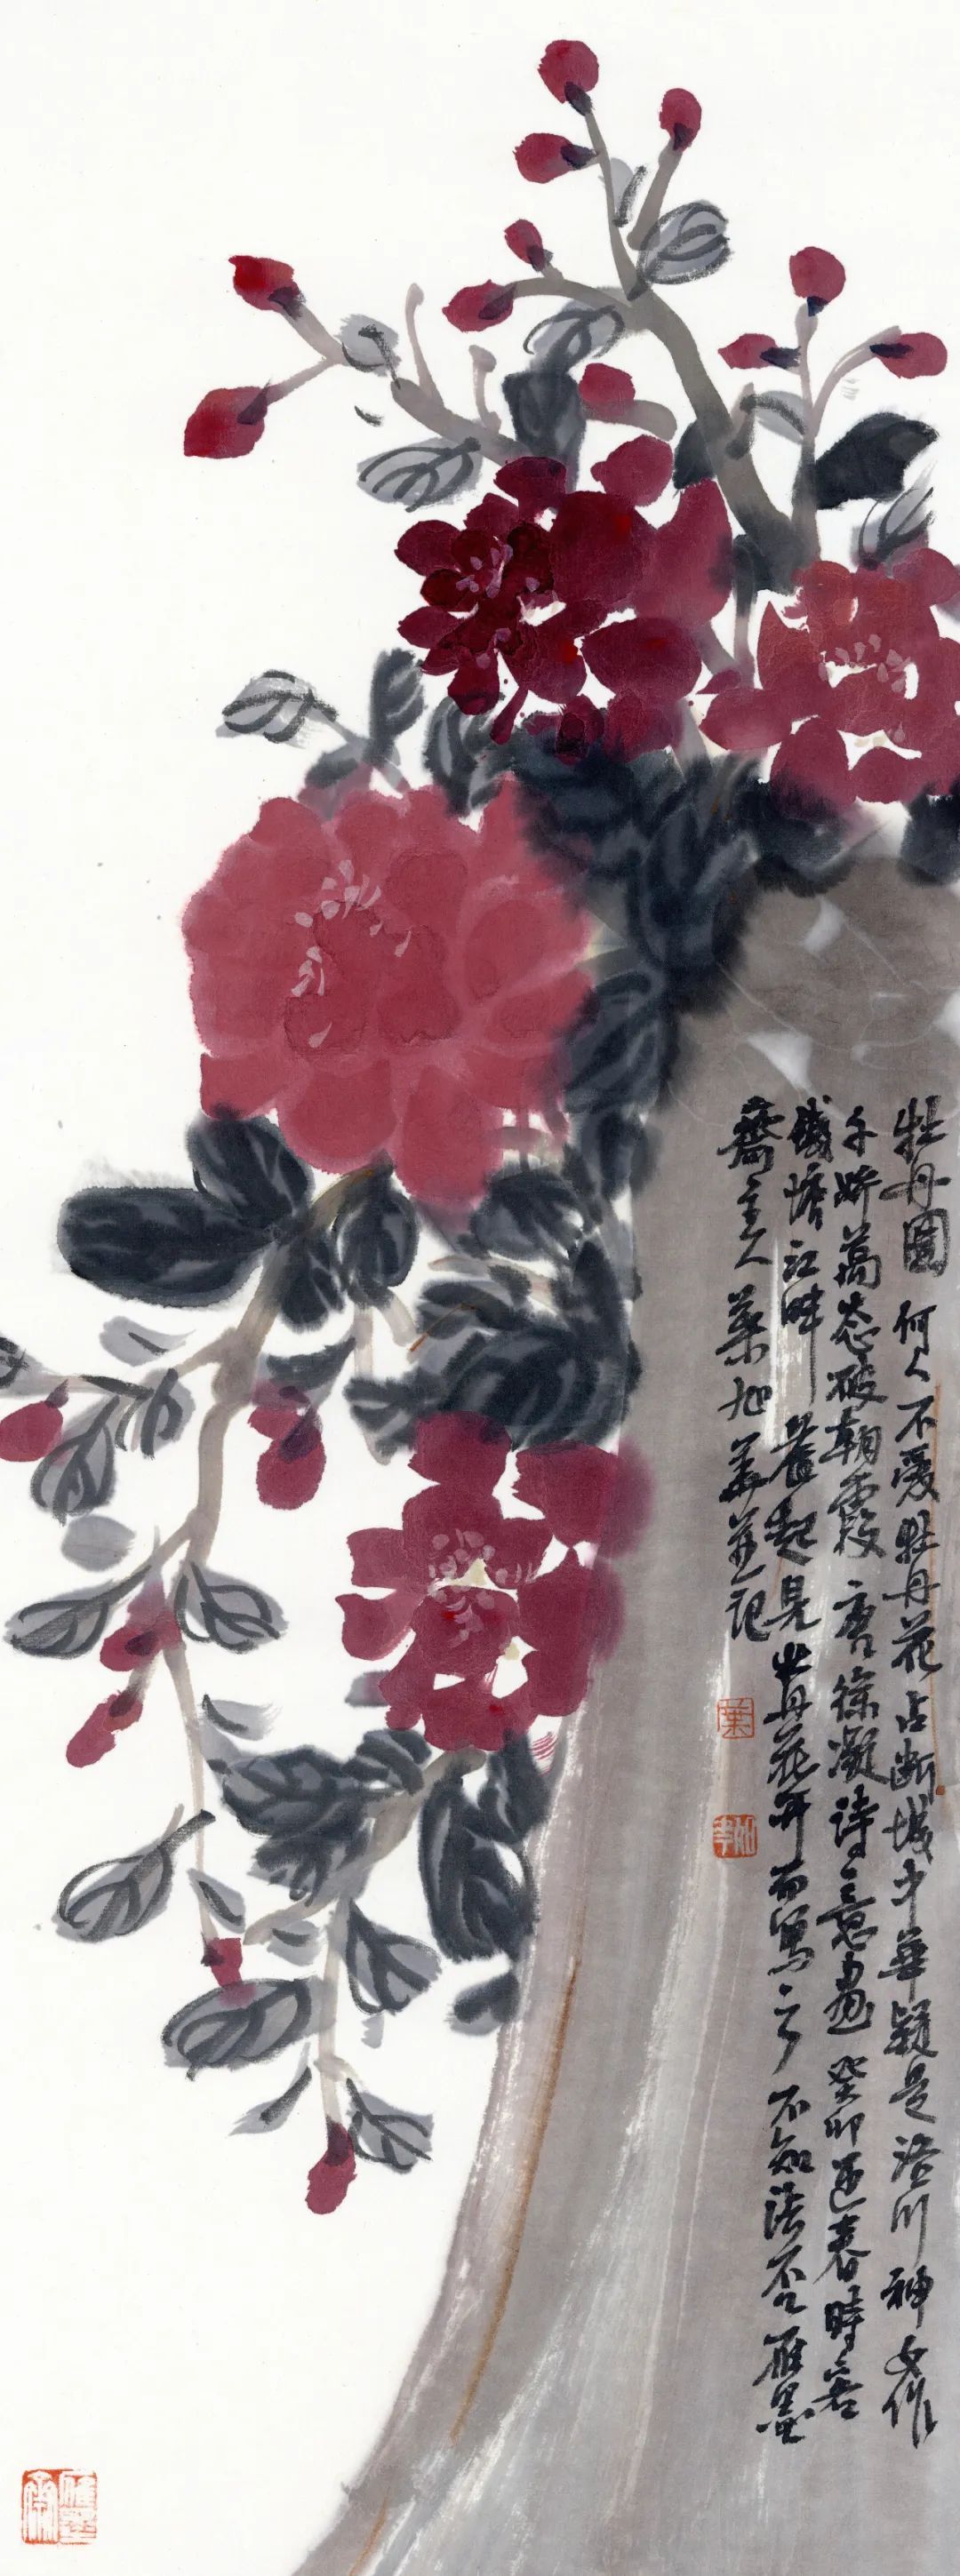 牡丹圖 何人不愛牡丹花占斷城中華疑是洛川神女作
千嬌萬態破朝霞 唐徐凝詩意畫 癸卯迎春時客
錢塘江畔 晨起見牡丹花開而寫之 不知法否 雁墨
齋主人葉旭華並記
葉
雁墨齋